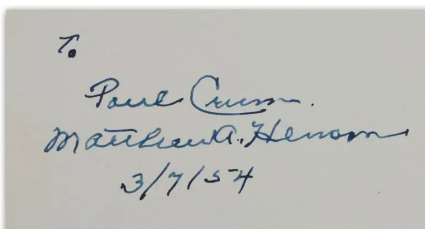 To
Paul Crum.
Matthew A. Henson
3/7/54